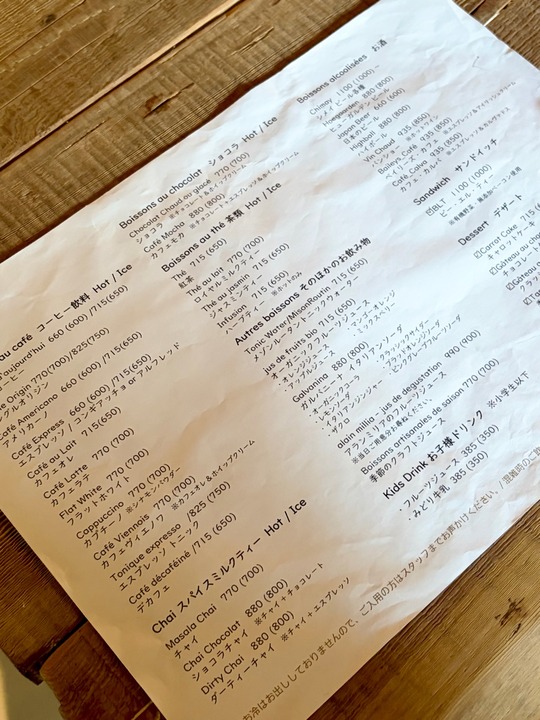 au café コーヒー飲料 Hot / Ice
d'aujourd'hui 660 (600) /715(650)
Origine 770(700)/825(750)
シングルオリジン
Café Americano 660 (600) /715(650)
アメリカーノ
Café Express 660 (600) /715(650)
エスプレッソ / コンギアッチョ or アルフレッド
Café au Lait 715(650)
カフェオレ
Café Latte 770 (700)
カフェラテ
Flat White 770 (700)
フラットホワイト
Cappuccino 770 (700)
カプチーノ ※シナモンパウダー
Café Viennois 770 (700)
カフェヴィエノワ ※カフェオレ & ホイップクリーム
Tonique expresso /825 (750)
エスプレッソ トニック
Café décaféiné /715 (650)
デカフェ
Chai スパイスミルクティー Hot / Ice
Masala Chai 770 (700)
チャイ
Chai Chocolat 880 (800)
ショコラチャイ ※チャイ+チョコレート
Dirty Chai 880 (800)
ダーティーチャイ ※チャイ+エスプレッソ
Boissons au chocolat ショコラ Hot / Ice
Chocolat Chaud ou glacé 770 (700)
ショコラ ※チョコレート&ホイップクリーム
Café Mocha 880 (800)
カフェモカ ※チョコレート+エスプレッソ&ホイップクリーム
Boissons au thé 茶類 Hot / Ice
Thé 715 (650)
紅茶
Thé au lait 770 (700)
ロイヤルミルクティー
Thé au jasmin 715 (650)
ジャスミンティー
Infusion 715 (650)
ハーブティー ※ホットのみ
Autres boissons そのほかのお飲み物
Tonic Water/MisonRoutin 715 (650)
メゾンルータントニックウォーター
jus de fruits bio 715 (650)
オーガニックフルーツジュース
・オレンジジュース ・マンゴーオレンジ
・アップルジュース ・ミックスベリー
Galvanina 880 (800)
ガルバニーナ イタリアンソーダ
・オーガニックコーラ
・レモンソーダ
・イタリアンジンジャー ・ピンクグレープフルーツソーダ
alain milliat - jus de degustation 990 (900)
アランミリアのフルーツジュース
Boissons artisanales de saison 770 (700)
季節のクラフトジュース
Kids Drink お子様ドリンク ※小学生以下
・フルーツジュース 385 (350)
・みどり牛乳 385 (350)
Boissons alcoolisées お酒
Chimay 1100 (1000) ~
シメイ ビール各種
Hoegaarden 880 (800)
ヒューガルデン ビール
Japan Beer 660 (600)
日本のビール
Highball 880 (800)
ハイボール
Vin Chaud 935 (850)
バンショー ※ホットワイン
Baileys Café 935 (850)
Café Calva 935 (850)
カフェ・カルバ
Sandwich サンドイッチ
BLT 1100 (1000)
ビー・エル・ティー
Dessert デザート
☑Carrot Cake 715 (6
キャロットケーキ
Gâteau au choc
チョコレート
Gâteau
お冷はお出ししておりませんので、ご入用の方はスタッフまでお声がけください。/ 混雑時のご